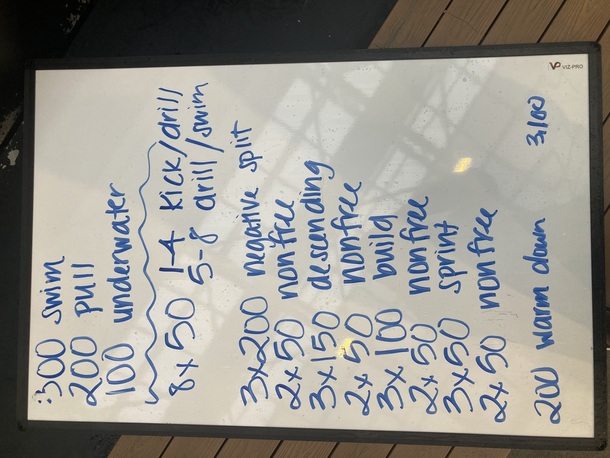 300 swim
200 pull
100 underwater
8 x 50 1-4 kick/drill
5-8 drill/swim
3x200 negative split
2x 50 nonfree
3x 150 descending
2x 50 nonfree
3x 100 build
2x 50 nonfree
3x 50 sprint
2x 50 nonfree
200 warm down 3,100
VIZ-PRO